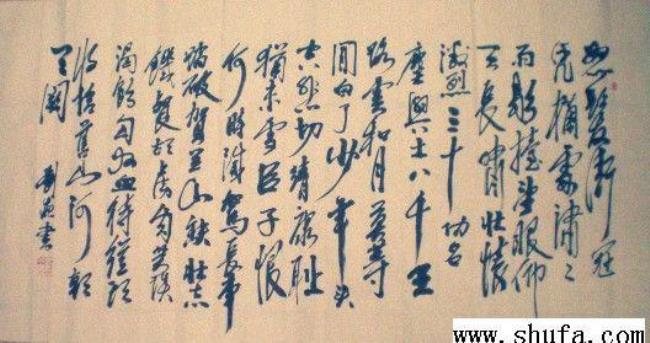 怒髮衝冠
凭欄處潇々
雨歇抬望眼仰
天長嘯壮懷
激烈三十功名
塵與土八千里
路雲和月莫等
閒白了少年头
空悲切靖康耻
猶未雪臣子恨
何時滅駕長車
踏破賀兰山缺壮志
饑餐胡虜肉笑談
渴飲匈奴血待從頭
收拾舊山河朝
天闕
書
www.shufa.com